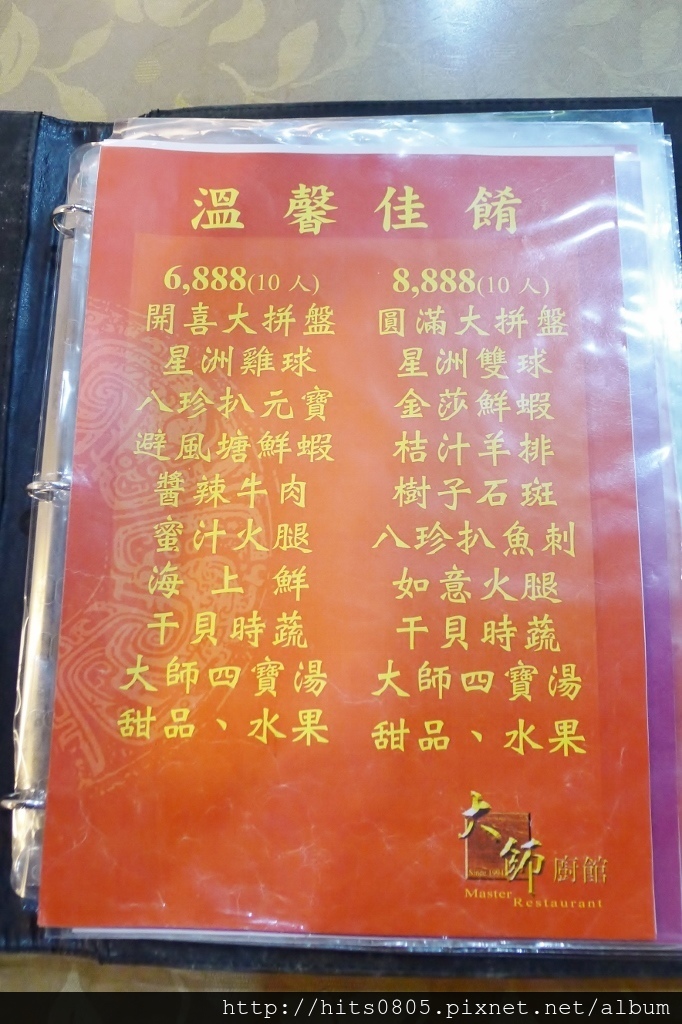 溫馨佳餚
6,888(10 人)
開喜大拼盤
星洲雞球
八珍扒元寶
避風塘鮮蝦
醬辣牛肉
蜜汁火腿
海上鮮
干貝時蔬
大師四寶湯
甜品、水果
8,888(10 人)
圓滿大拼盤
星洲雙球
金莎鮮蝦
桔汁羊排
樹子石斑
八珍扒魚刺
如意火腿
干貝時蔬
大師四寶湯
甜品、水果
大師廚館
Since 1994
Master Restaurant
http://hits0805.pixnet.net/album